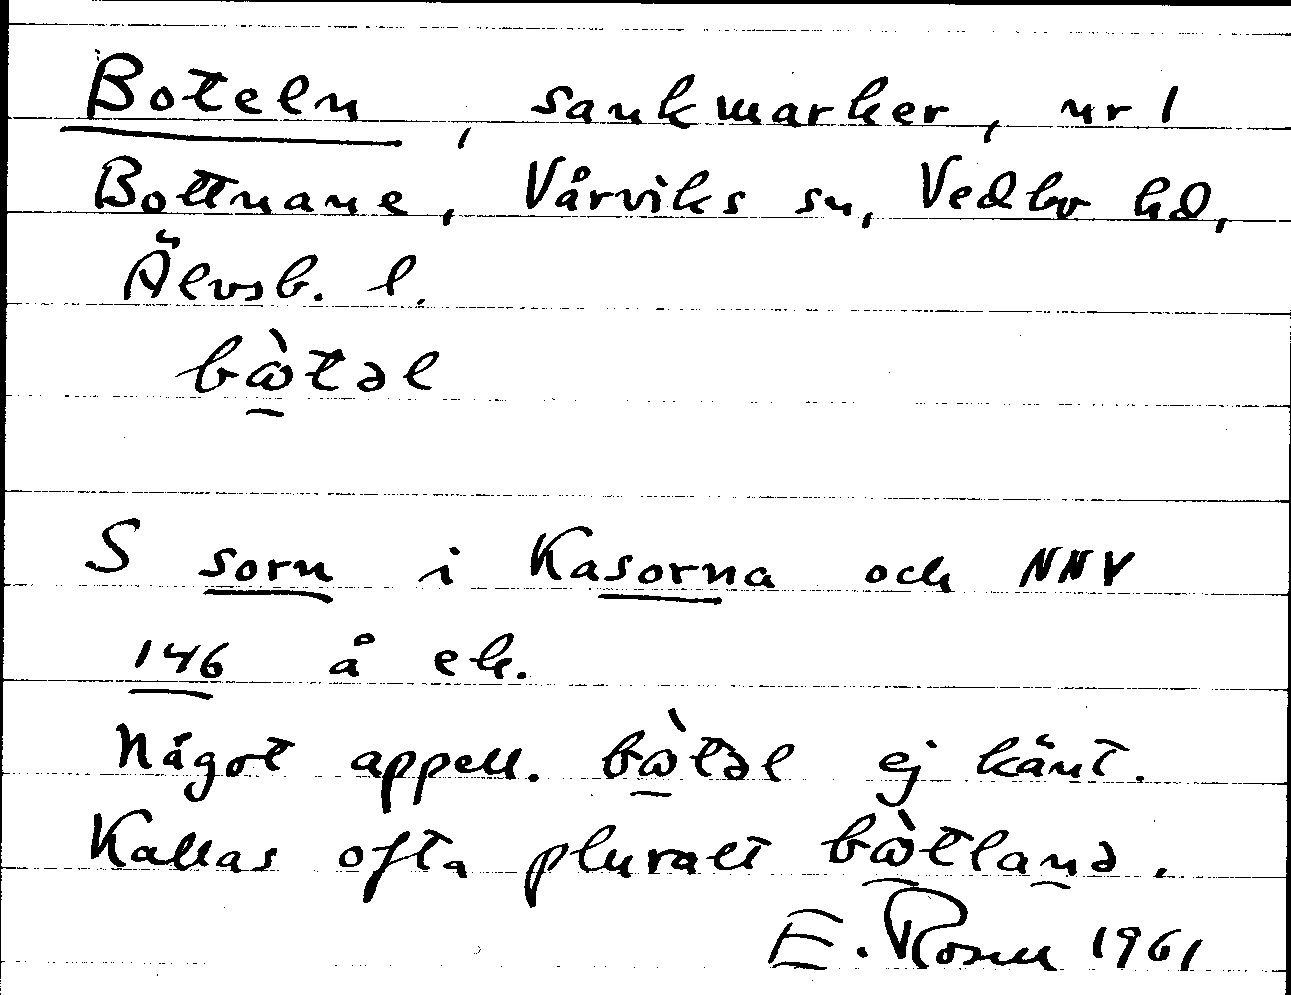 Boteln, sankmarker, nr 1
Bottnane, Vårviks sn, Vedbo hd,
Älvsb. l.
bὼtəl
S sorn i Kasorna och NNV
146 å ek.
Något appell. bὼtəl ej känt.
Kallas ofta pluralt bὼtlanə.
E. Rosén 1961